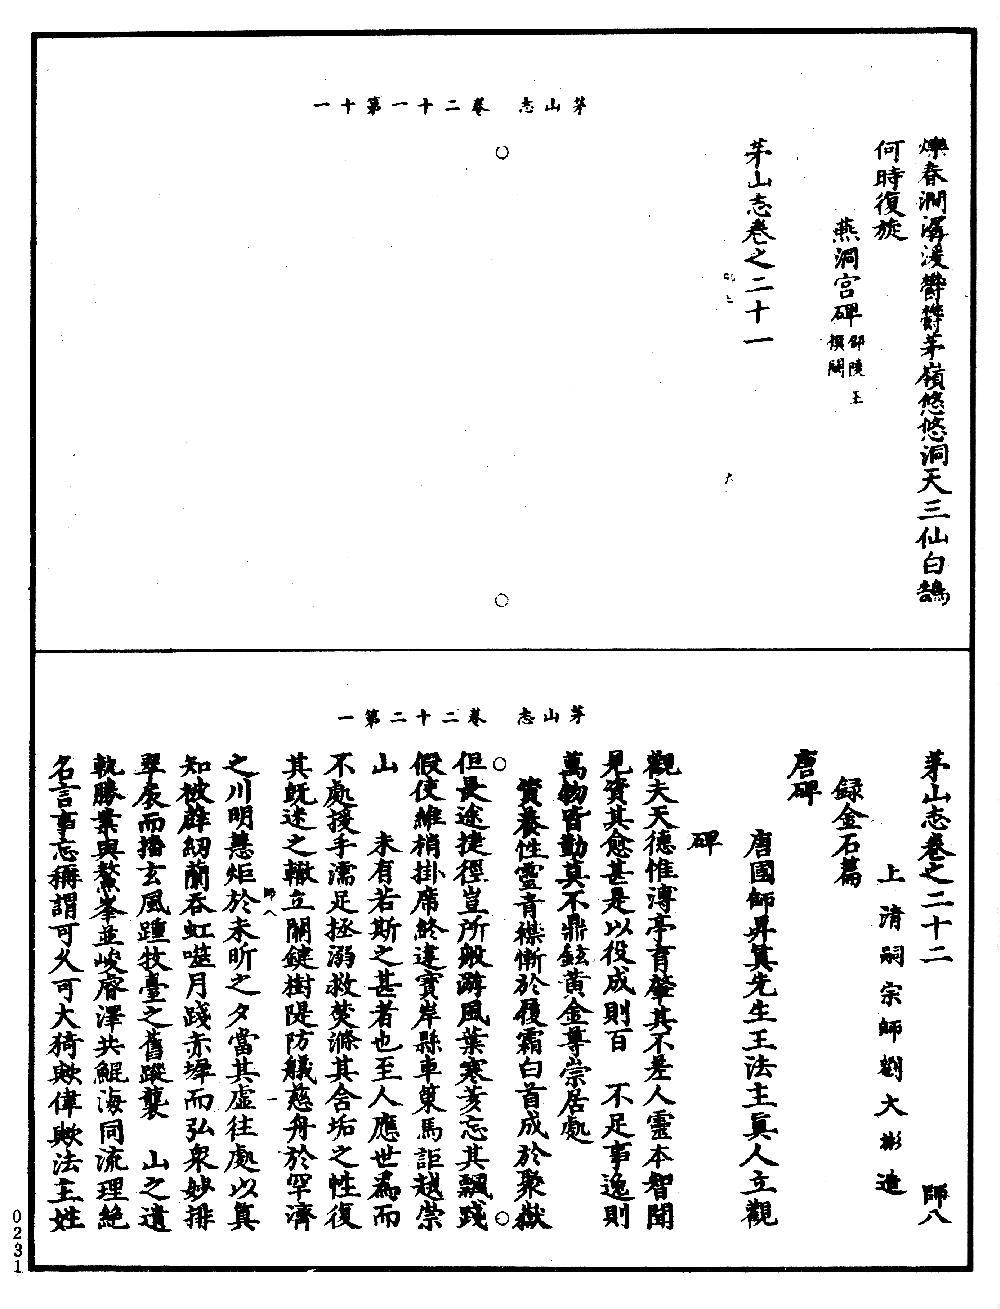 茅山志　卷二十一第十一
爍春澗潺湲鬱鬱茅嶺悠悠洞天三仙白鵠
何時復旋
燕洞宮碑 邵陵王撰闕
茅山志卷之二十一
茅山志　卷二十二第一
茅山志卷之二十二　師八
上清嗣宗師劉大彬造
録金石篇
唐碑
唐國師昇真先生王法主真人立觀
碑
觀夫天德惟溥亭育肇其不差人靈本智聞
見資其愈甚是以役成則百　不足事逸則
萬物皆勤莫不鼎鉉黃金尊崇居處
資養性靈青襟慚於履霜白首成於聚嶽
但最途捷徑豈所般游風葉寒荄忘其飄踐
假使維梢掛席終違寶岸縣車策馬詎越崇
山　未有若斯之甚者也至人應世爲而
不處援手濡足拯溺救焚滌其舍垢之性復
其既迷之轍立關鍵樹隄防艤慈舟於罕濟
之川明慧炬於未昕之夕當其虛往處以真
知被薜紉蘭吞虹噬月踐赤墀而弘衆妙排
翠扆而播玄風踵牧臺之舊蹤襲　山之遺
軌勝業與鰲峯並峻睿澤共鯤海同流理絶
名言事忘稱謂可久可大猗歟偉歟法主姓
師八
一
0231